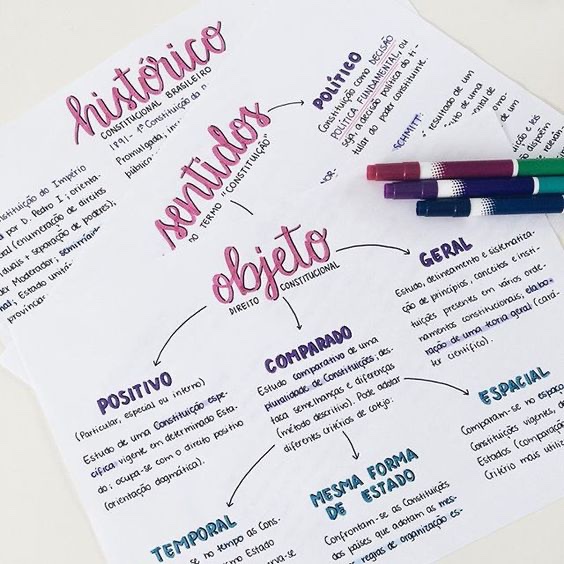 histórico
CONSTITUCIONAL BRASILEIRO
1891 - 1ª Constituição do
Promulgada,
público
nstituição do Império
por D. Pedro I; orienta
(enumeração de direitos
separação de poderes);
Moderador;
Estado unitá-
província
sentidos
DO TERMO "CONSTITUIÇÃO"
POLÍTICO
Constituição como DECISÃO
POLÍTICA FUNDAMENTAL, ou
seja, a decisão política do ti-
tular do poder constituinte.
SCHMITT:
resultado de um
de uma
de
um
objeto
DIREITO CONSTITUCIONAL
GERAL
Estudo, delineamento e sistematiza-
ção de princípios, conceitos e insti-
tuições presentes em vários orde-
namentos constitucionais; elabo-
ração de uma teoria geral (cará-
ter científico).
POSITIVO
(Particular, especial ou interno)
Estudo de uma Constituição espe-
cífica vigente em determinado Esta-
do; ocupa-se com o direito positivo
(orientação dogmática).
COMPARADO
Estudo comparativo de uma
pluralidade de Constituições; des-
taca semelhanças e diferenças
(método descritivo). Pode adotar
diferentes critérios de cotejo:
ESPACIAL
Comparam-se no espaço
Constituições vigentes, de
Estados (comparação
Critério mais
MESMA FORMA
DE ESTADO
Confrontam-se as Constituições
dos países que adotam as mes-
regras de organização es-
TEMPORAL
se no tempo as Cons-
mesmo Estado